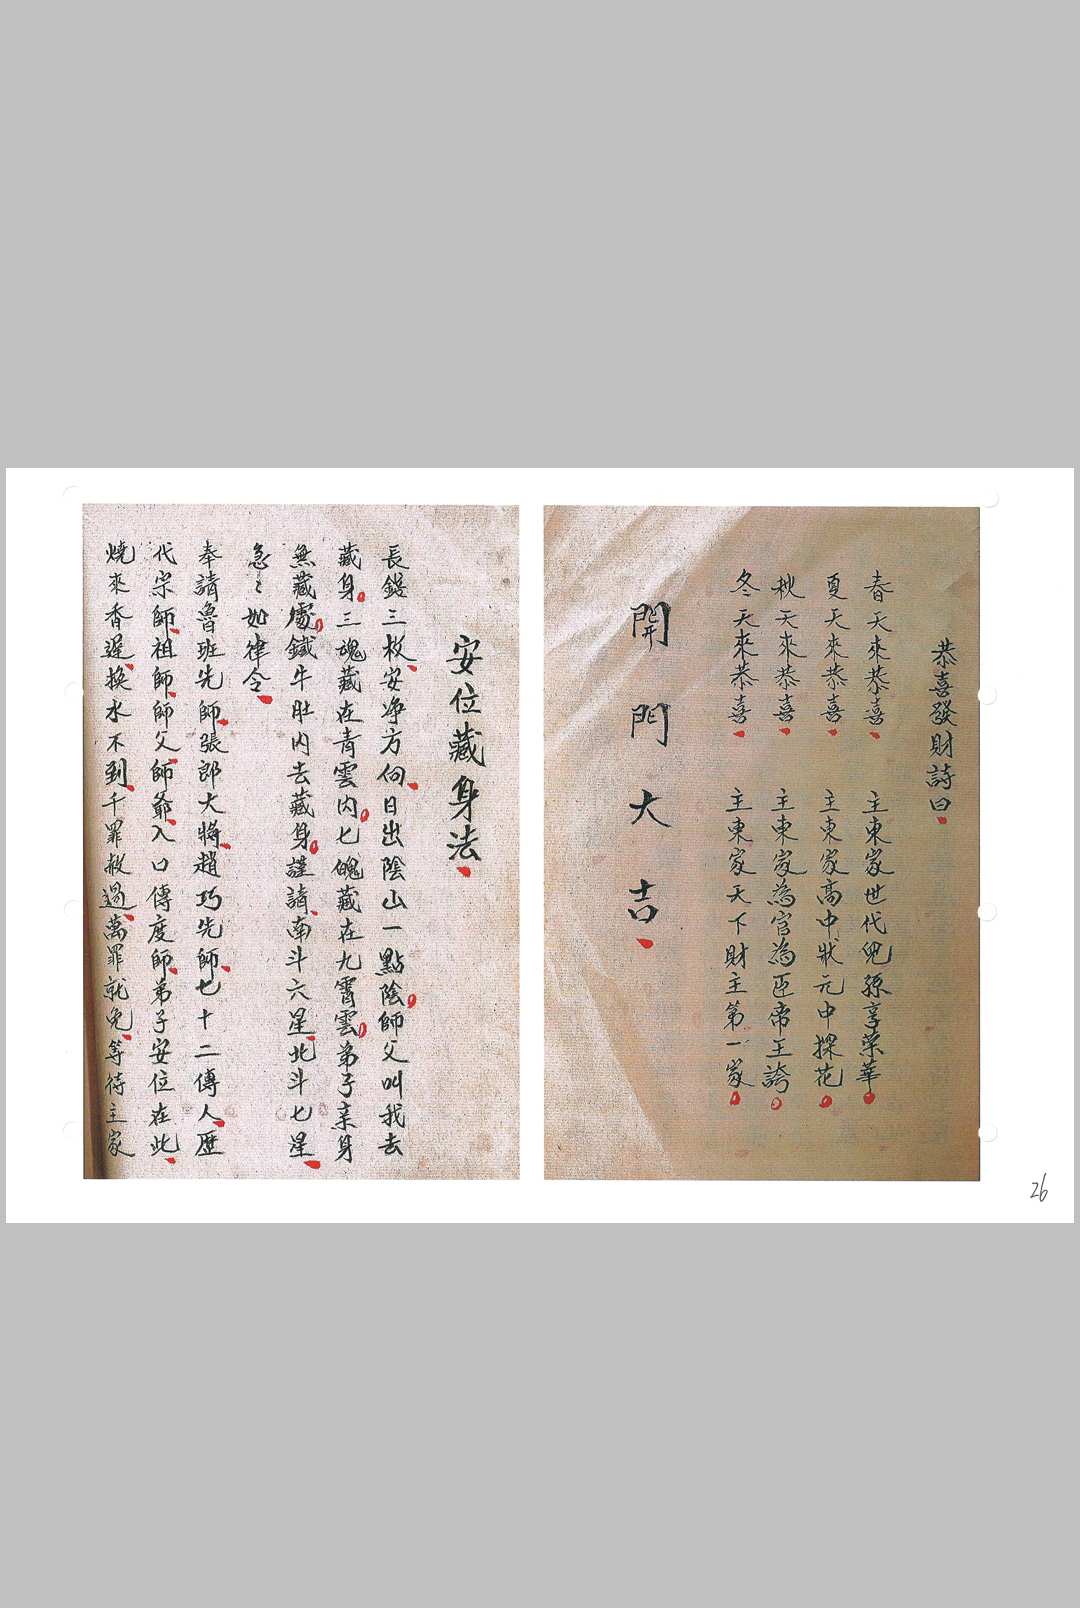 恭喜發財詩曰
春天來恭喜 主東家世代兒孫享榮華
夏天來恭喜 主東家高中狀元中探花
秋天來恭喜 主東家為官為臣帝王誇
冬天來恭喜 主東家天下財主第一家
開門大吉
安位藏身法
長錢三枚安净方向日出陰山一點陰師父叫我去
藏身三魂藏在青雲内七魄藏在九霄雲弟子亲身
無藏處鐵牛肚内去藏身謹請南斗六星北斗七星
急々如律令
奉請魯班先師張郎大將趙巧先師七十二傳人歷
代宗師祖師師父師爺入口傳度師弟子安位在此
燒來香遲換水不到千罪赦過萬罪就免等待主家
26